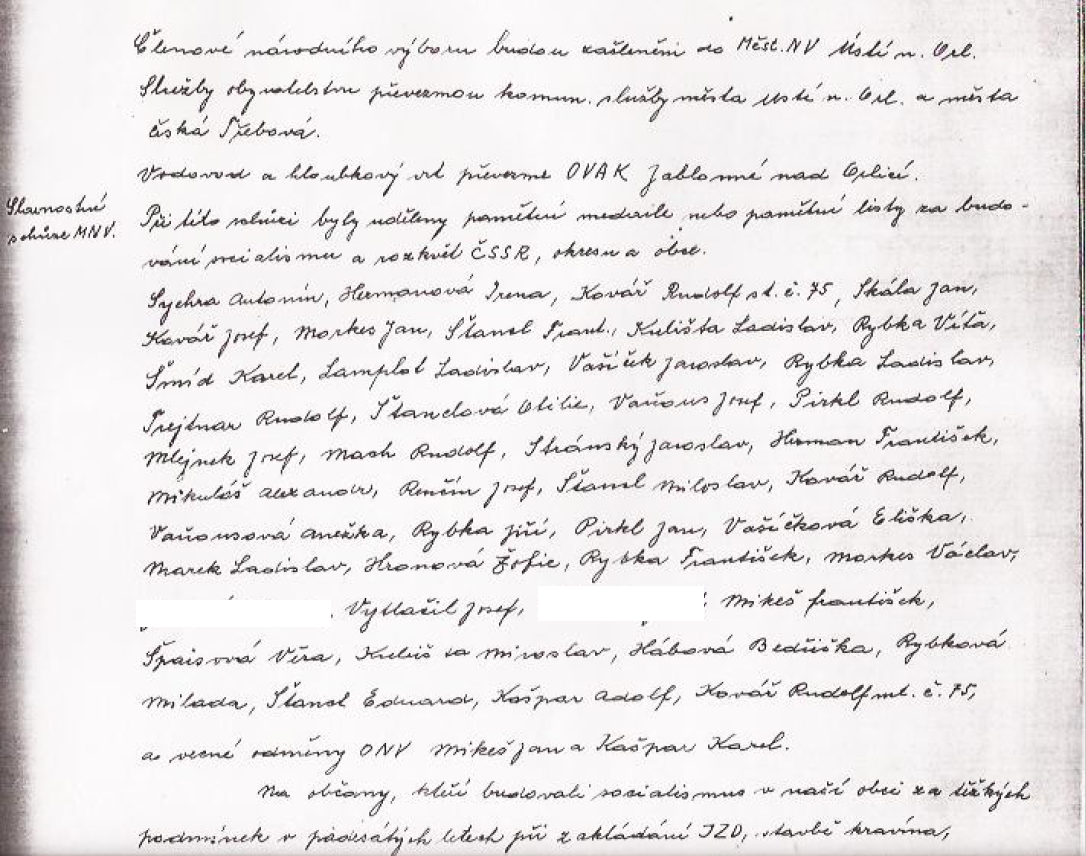 Členové národního výboru budou začleněni do Měst. NV Ústí n. Orl.
Služby obyvatelstvu převezmou komun. služby města Ústí n. Orl. a města
Česká Třebová.
Vodovod a hloubkový vrt převezme OVAK Jablonné nad Orlicí.
Slavnostní
schůze MNV.
Při této schůzi byly uděleny pamětní medaile nebo pamětní listy za budo-
vání socialismu a rozkvět ČSSR, okresu a obce.
Sychra Antonín, Hermanová Irena, Kovář Rudolf st. č. 75, Skála Jan,
Kovář Josef, Morkes Jan, Štancl Frant., Kulišta Ladislav, Rybka Víťa,
Šmíd Karel, Lamplot Ladislav, Vašíček Jaroslav, Rybka Ladislav,
Trejtnar Rudolf, Štanclová Otilie, Vaňous Josef, Pirkl Rudolf,
Mlejnek Josef, Mach Rudolf, Stránský Jaroslav, Herman František,
Mikuláš Alexandr, Renčín Josef, Štancl Miloslav, Kovář Rudolf,
Vaňousová Anežka, Rybka Jiří, Pirkl Jan, Vašíčková Eliška,
Marek Ladislav, Hronová Žofie, Rybka František, Morkes Václav,
Vytlačil Josef, Mikeš František,
Špaisová Věra, Miroslav, Hábová Bedřiška, Rybková
Milada, Štancl Eduard, Kašpar Adolf, Kovář Rudolf ml. č. 75,
a věcné odměny ONV Mikeš Jan a Kašpar Karel.
Na občany, kteří budovali socialismus v naší obci za těžkých
podmínek v padesátých letech při zakládání JZD, stavbě kravína,